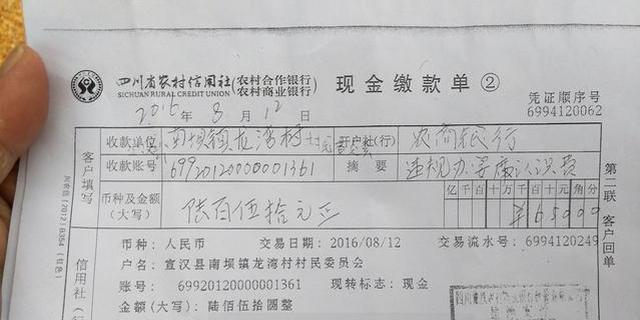 四川省农村信用社(农村合作银行 农村商业银行) 现金缴款单②
SICHUAN RURAL CREDIT UNION
凭证顺序号
6994120062
2016年8月12日
收款单位 南坝镇龙湾村 开户社(行) 农商银行
收款账号 69920120000001361 摘要 违规办
客户填写
币种及金额(大写) 陆百伍拾元正 亿千百十万千百十元角分
¥65000
川农信(2012)B354(红色)
第二联 客户回单
币种:人民币 交易日期:2016/08/12 交易流水号:6994120249
户名:宣汉县南坝镇龙湾村村民委员会
账号:69920120000001361 现转标志:现金
金额(大写):陆佰伍拾圆整
信用社(